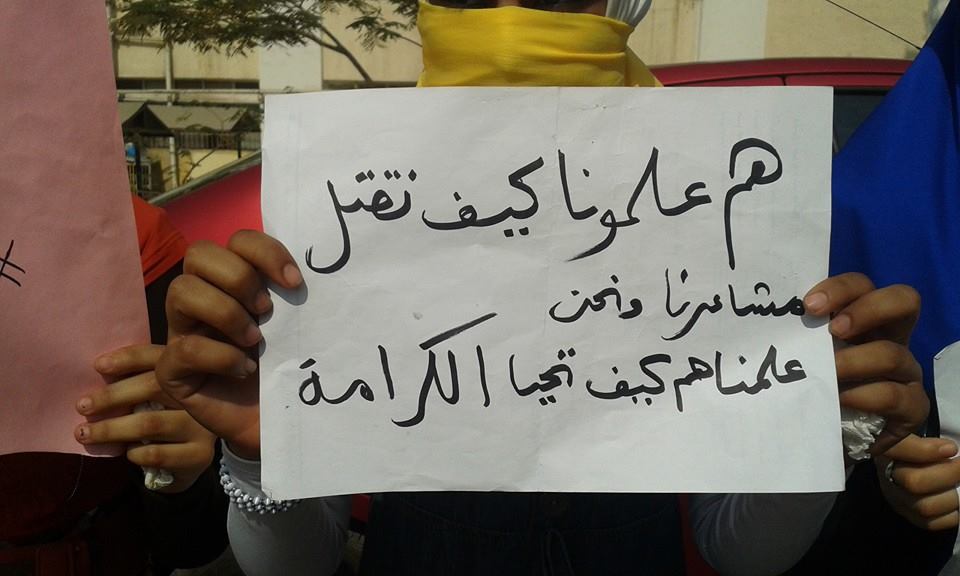 هم علمونا كيف نقتل
مشاعرنا ونحن
علمناهم كيف تحيا الكرامة
#